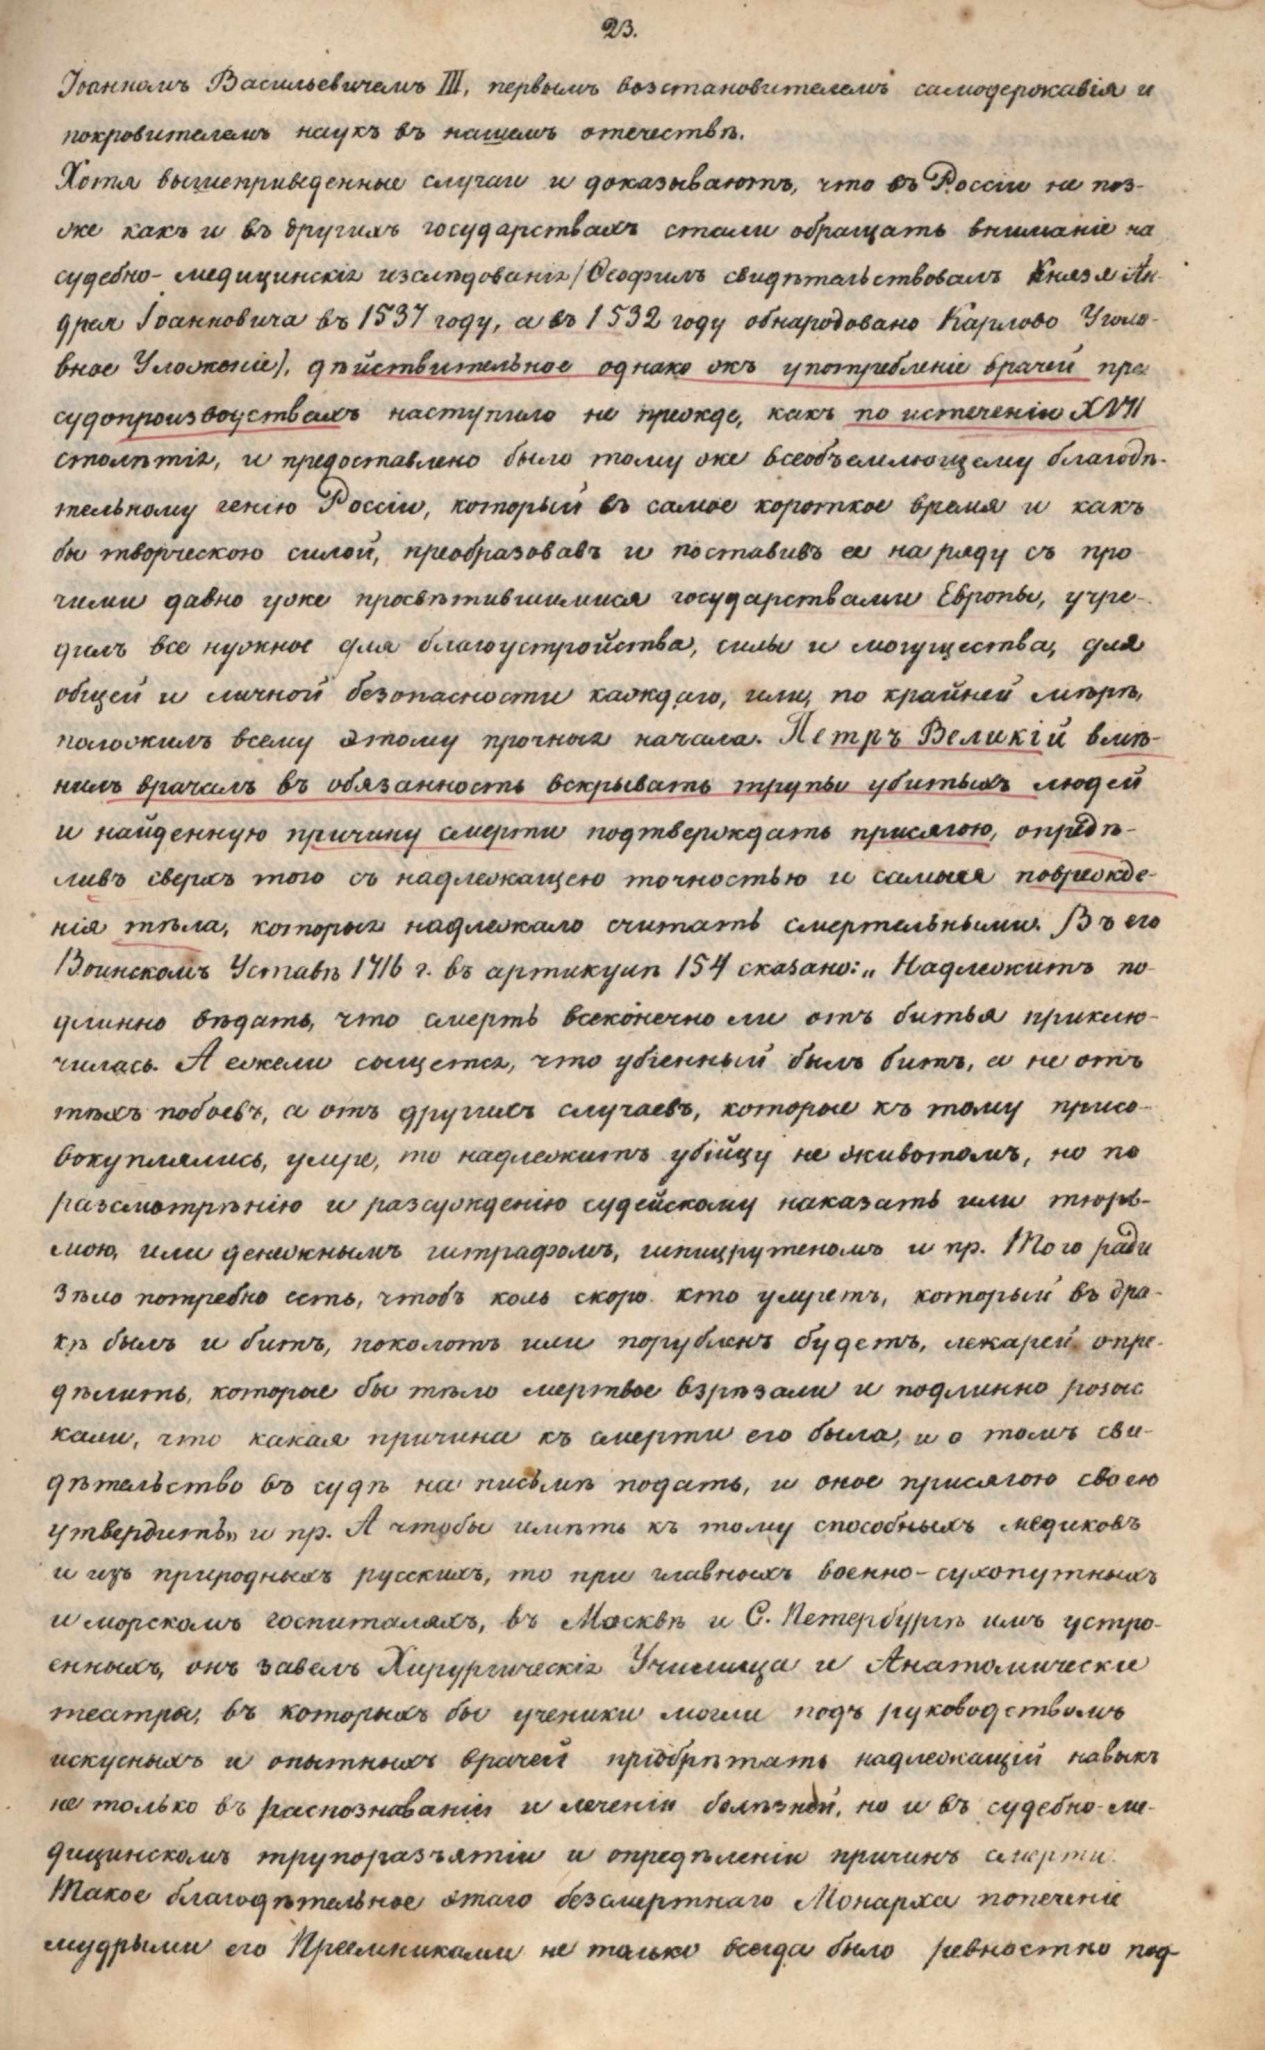 23.
Іоанномъ Васильевичемъ III, первымъ возстановителемъ самодержавія и
покровителемъ наукъ въ нашемъ отечествѣ.
Хотя вышеприведенные случаи и доказываютъ, что въ Россіи не поз-
же какъ и въ другихъ государствахъ стали обращать вниманіе на
судебно-медицинскія изслѣдованія (Ѳеофилъ свидѣтельствовалъ Князя Ан-
дрея Іоанновича въ 1537 году, а въ 1532 году обнародовано Карлово Уголо-
вное Уложеніе), дѣйствительное однако жъ употребленіе врачей при
судопроизводствахъ наступило не прежде, какъ по истеченіи XVII
столѣтія, и предоставлено было тому же всеобъемлющему благодѣ-
тельному генію Россіи, который въ самое короткое время и какъ
бы творческою силой, преобразовавъ и поставивъ ее на ряду съ про-
чими давно уже просвѣтившимися государствами Европы, учре-
дилъ все нужное для благоустройства, силы и могущества, для
общей и личной безопасности каждаго, или, по крайней мѣрѣ,
положилъ всему этому прочныя начала. Петръ Великій вмѣ-
нилъ врачамъ въ обязанность вскрывать трупы убитыхъ людей
и найденную причину смерти подтверждать присягою, опредѣ-
ливъ сверхъ того съ надлежащею точностью и самыя поврежде-
нія тѣла, которыя надлежало считать смертельными. Въ его
Воинскомъ Уставѣ 1716 г. въ артикулѣ 154 сказано: „Надлежитъ по-
длинно вѣдать, что смерть всеконечно ли отъ битья приклю-
чилась. А ежели сыщется, что убіенный былъ битъ, а не отъ
тѣхъ побоевъ, а отъ другихъ случаевъ, которые къ тому присо-
вокуплялись, умре, то надлежитъ убійцу не животомъ, но по
разсмотрѣнію и разсужденію судейскому наказать или тюрь-
мою, или денежнымъ штрафомъ, шпицрутеномъ и пр. Того ради
зѣло потребно есть, чтобъ коль скоро кто умретъ, который въ дра-
кѣ былъ и битъ, поколотъ или порубленъ будетъ, лекарей опре-
дѣлить, которые бы тѣло мертвое взрѣзали и подлинно розыс
кали, что какая причина къ смерти его была, и о томъ сви-
дѣтельство въ судѣ на письмѣ подать, и оное присягою своею
утвердить„ и пр. А чтобы имѣть къ тому способныхъ медиковъ
и изъ природныхъ русскихъ, то при главныхъ военно-сухопутныхъ
и морскомъ госпиталяхъ, въ Москвѣ и С. Петербургѣ имъ устро-
енныхъ, онъ завелъ Хирургическія Училища и Анатомическіе
театры, въ которыхъ бы ученики могли подъ руководствомъ
искусныхъ и опытныхъ врачей пріобрѣтать надлежащій навыкъ
не только въ распознаваніи и леченіи болѣзней, но и въ судебно-ме-
дицинскомъ трупоразъятіи и опредѣленіи причинъ смерти.
Такое благодѣтельное этаго безсмертнаго Монарха попеченіе
мудрыми его Преемниками не только всегда было ревностно под-